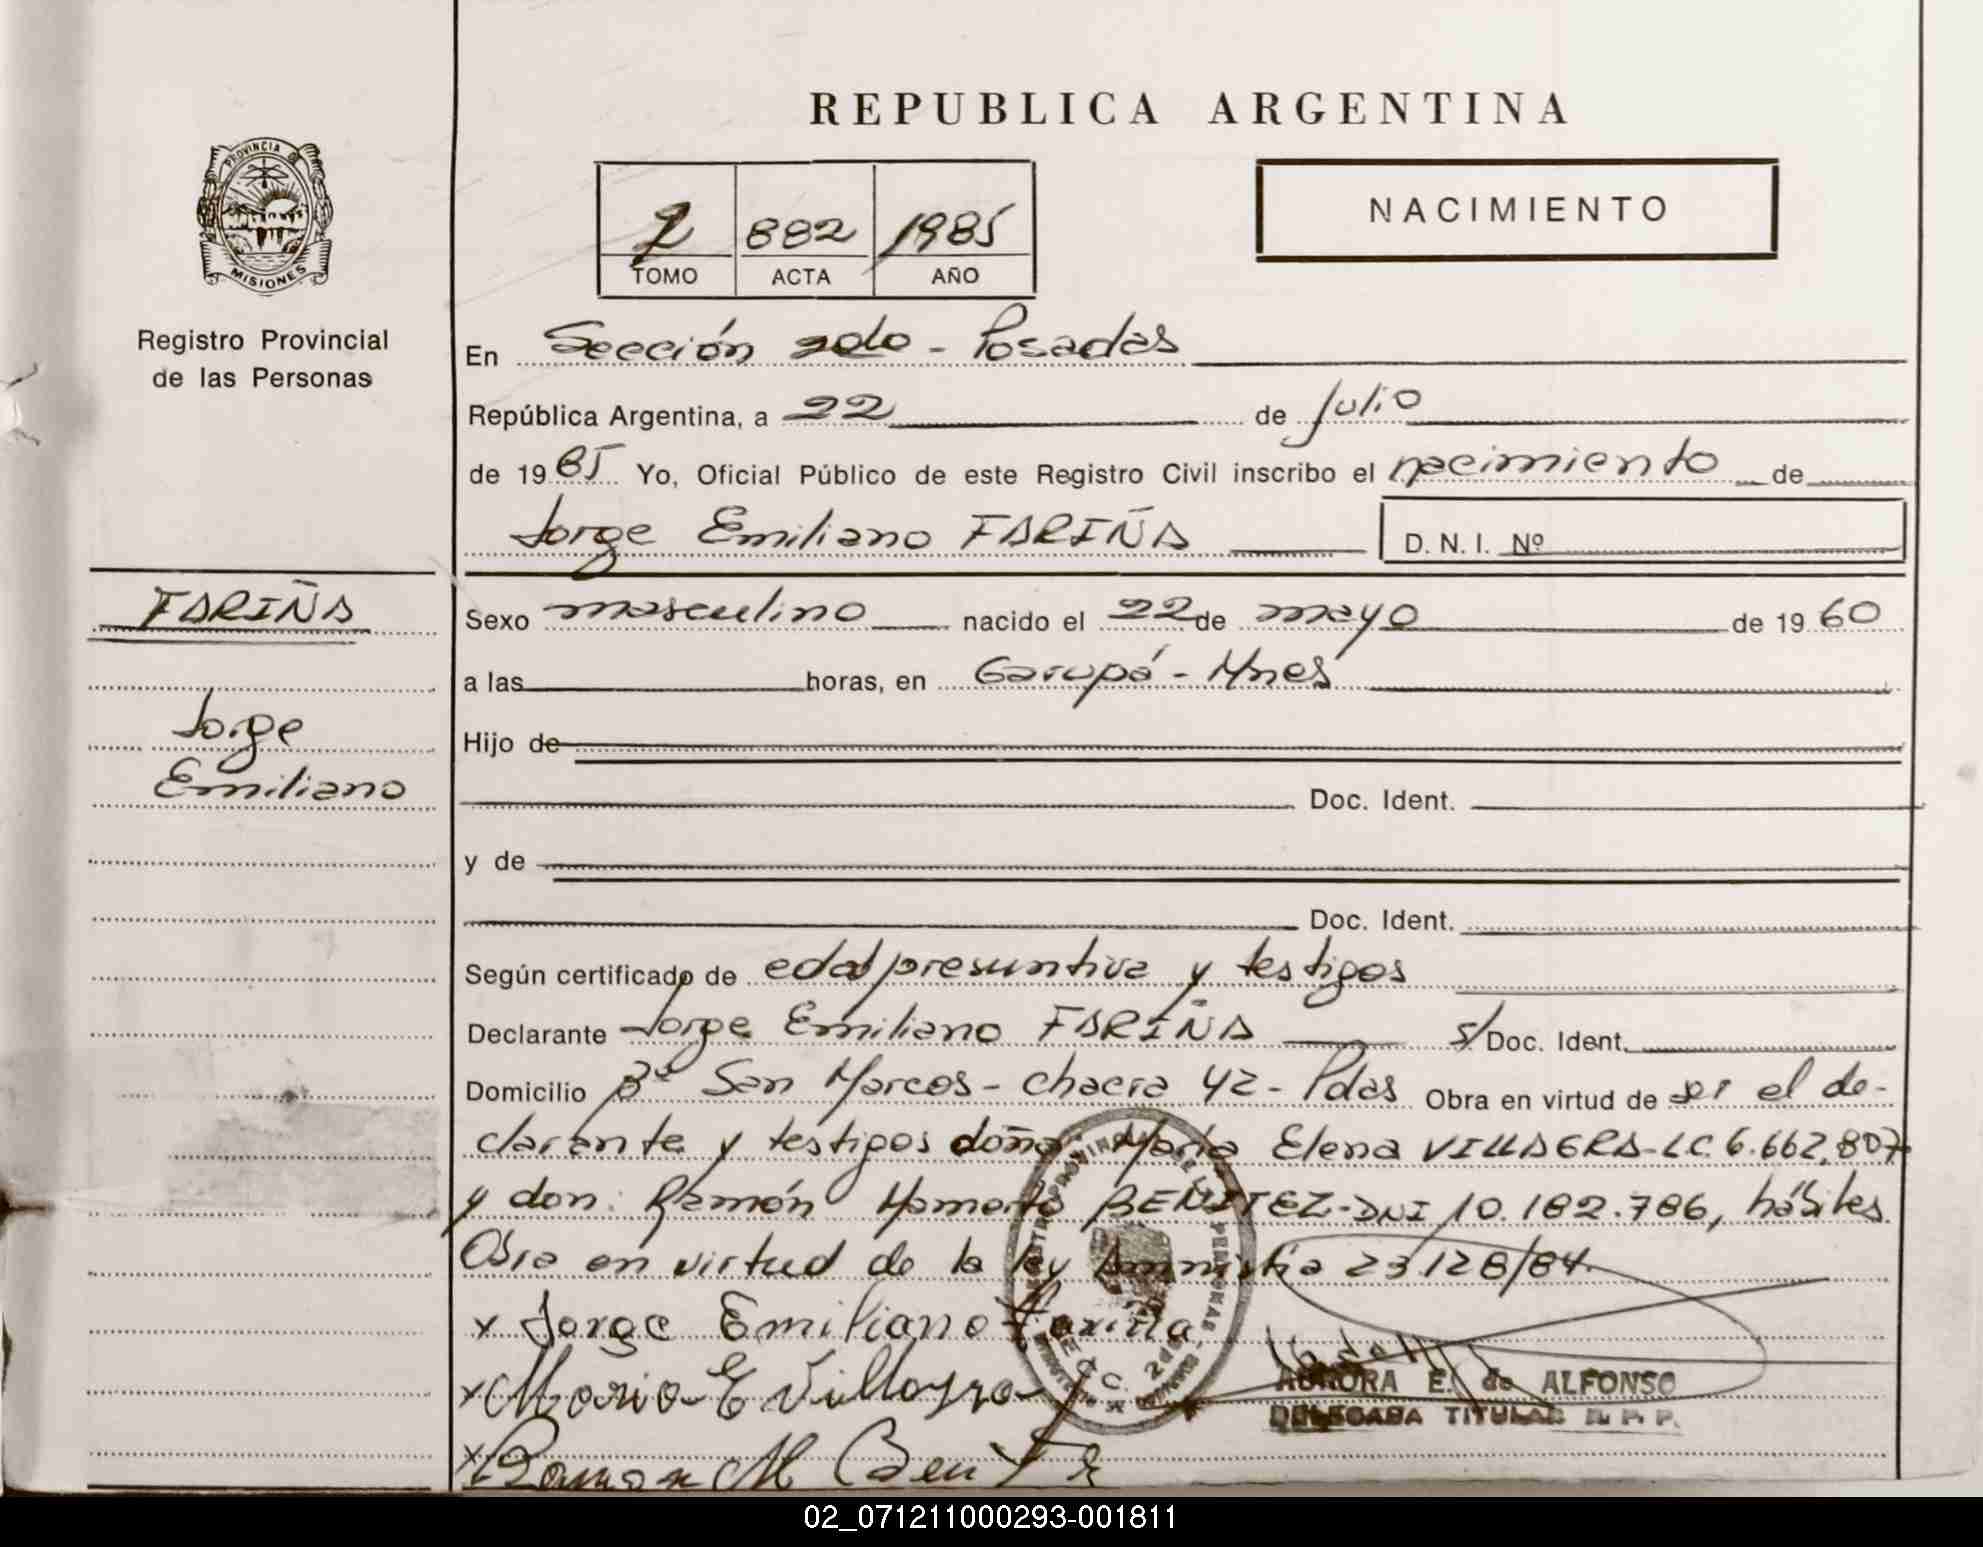 REPUBLICA ARGENTINA
PROVINCIA DE
MISIONES
Registro Provincial
de las Personas
2 882 1985
TOMO ACTA AÑO
NACIMIENTO
En Sección 2do - Posadas
República Argentina, a 22 de Julio
de 1985 Yo, Oficial Público de este Registro Civil inscribo el nacimiento de
Jorge Emiliano FARIÑA D. N. I. Nº
FARIÑA
Jorge
Emiliano
Sexo masculino nacido el 22 de mayo de 1960
a las horas, en Garupá - Mnes
Hijo de
Doc. Ident.
y de
Doc. Ident.
Según certificado de edad presuntiva y testigos
Declarante Jorge Emiliano FARIÑA s/ Doc. Ident.
Domicilio Bº San Marcos - chacra 42 - Pdas Obra en virtud de ser el de-
clarante y testigos doña María Elena VILLAGRA - LC. 6.662.807
y don: Ramón Mamerto BENITEZ - DNI 10.182.786, hábiles
Obra en virtud de la ley Amnistia 23128/84.
x Jorge Emiliano Fariña
x Maria E Villagra
x Ramon M Benitez
AURORA E. de ALFONSO
DELEGADA TITULAR R. P. P.
02_071211000293-001811